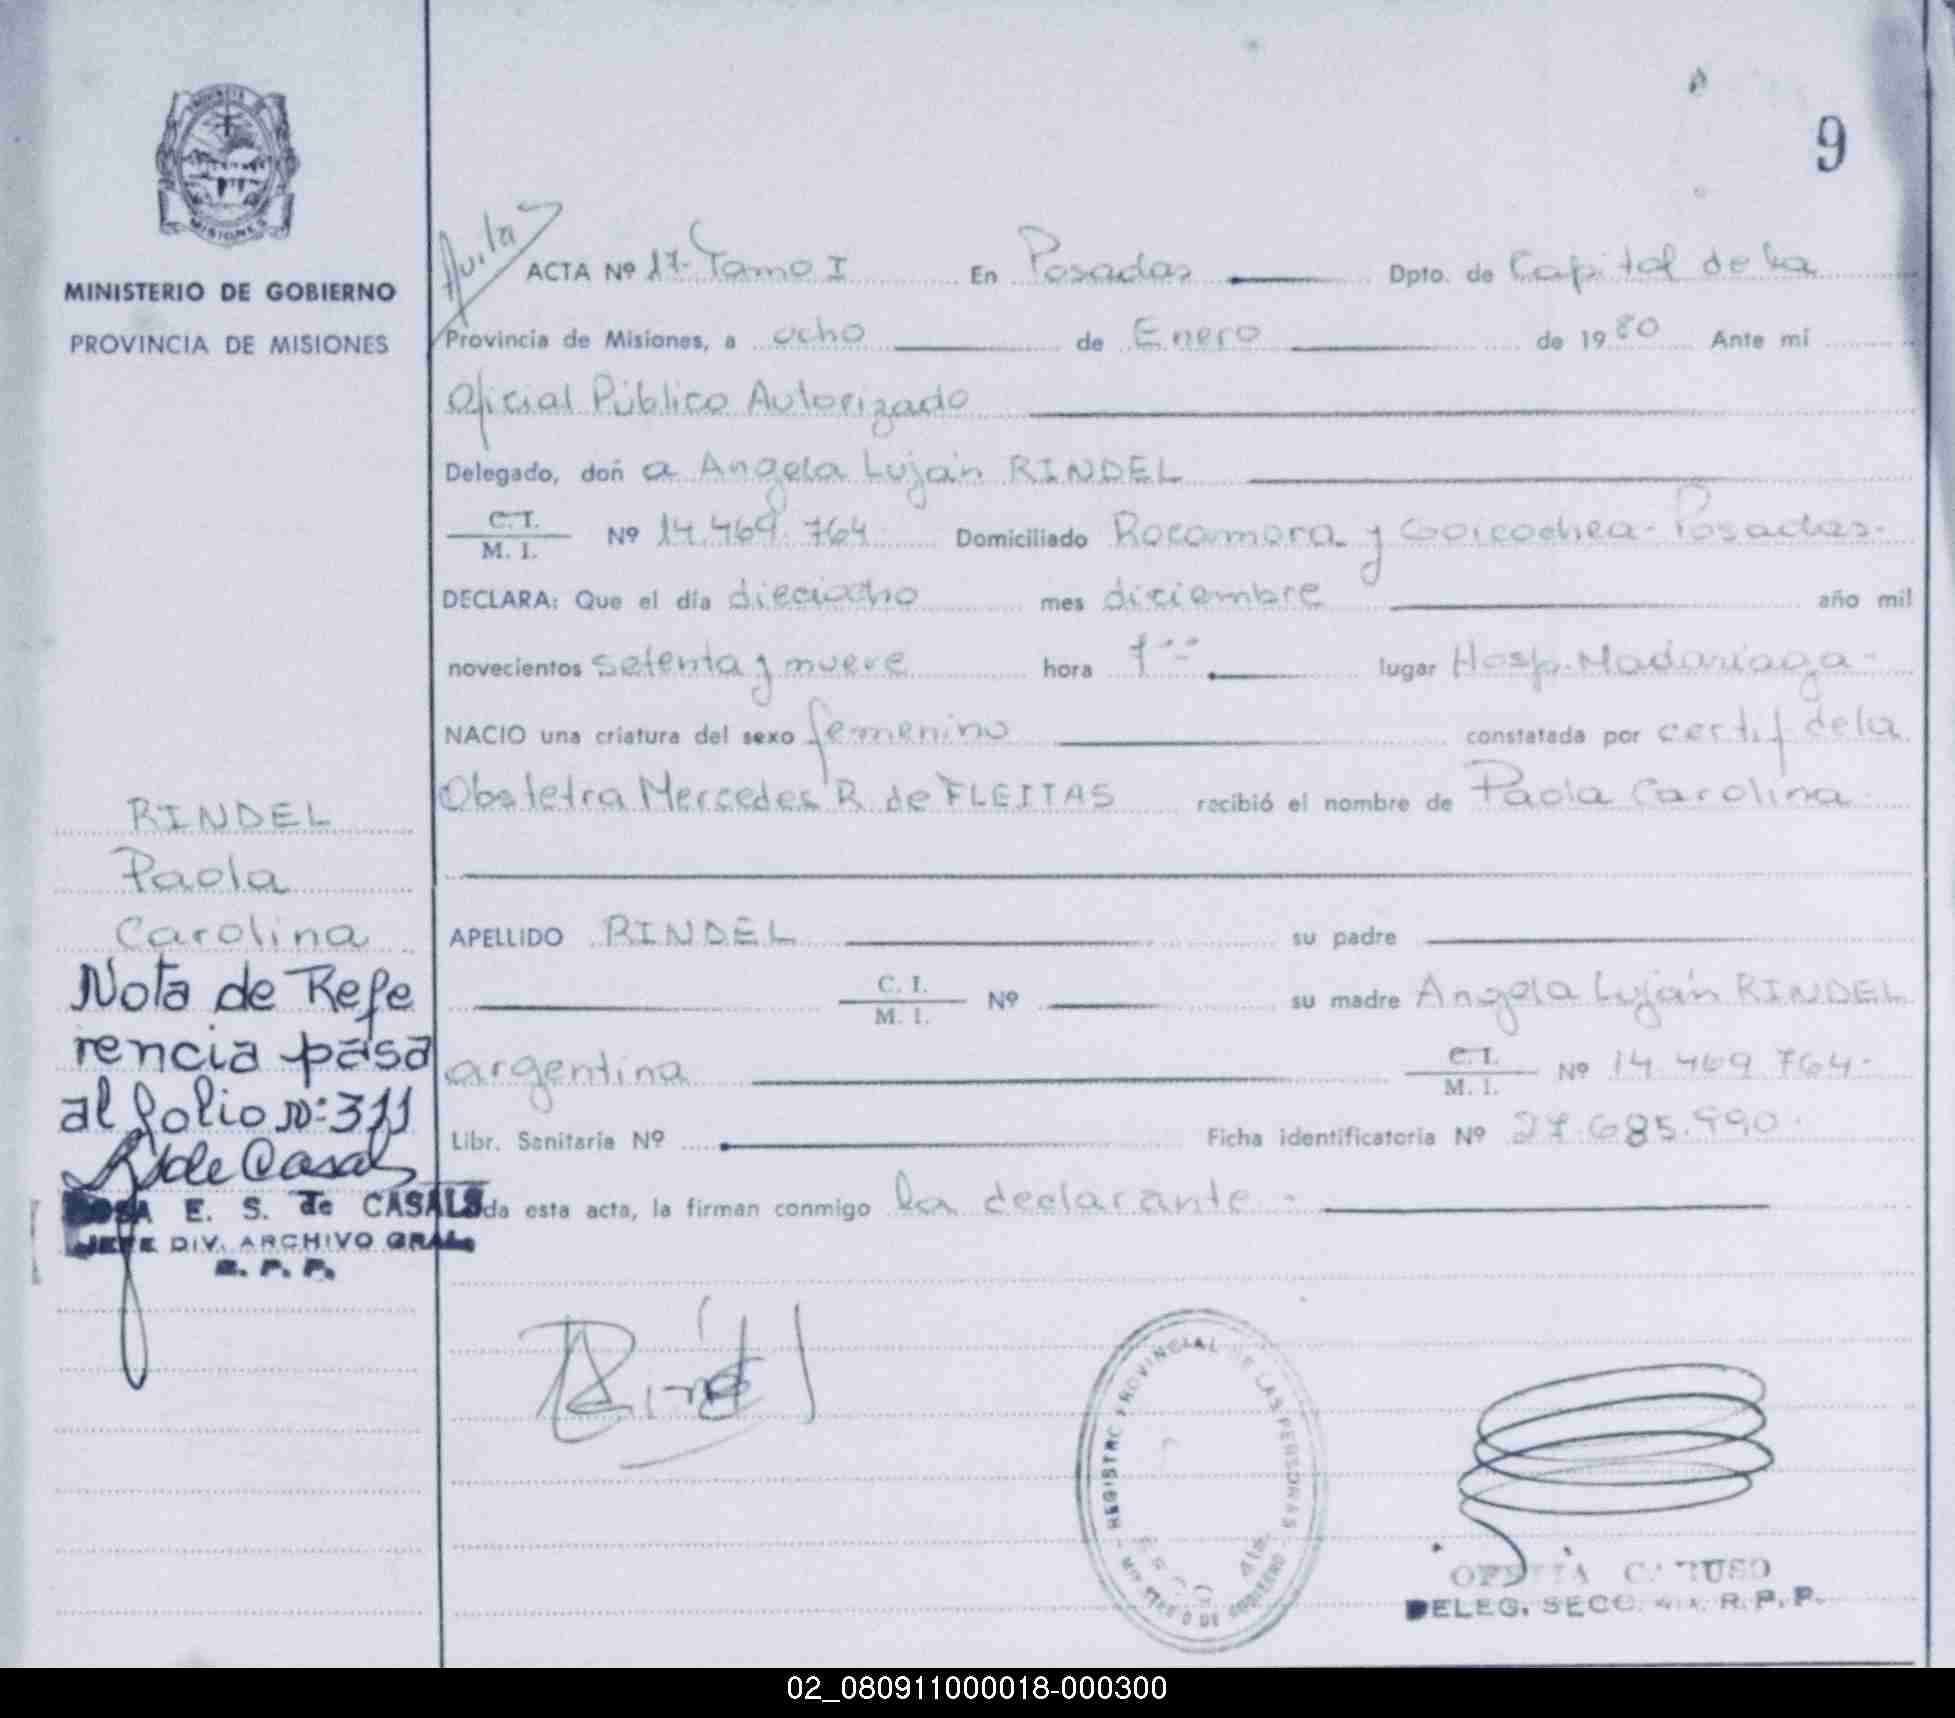 9
PROVINCIA DE
MISIONES
MINISTERIO DE GOBIERNO
PROVINCIA DE MISIONES
Avila
ACTA Nº 17- Tomo I En Posadas Dpto. de Capital de la
Provincia de Misiones, a ocho de Enero de 1980 Ante mí
Oficial Público Autorizado
Delegado, doña Angela Luján RINDEL
C. I.
M. I. Nº 14.469.764 Domiciliado Rocamora y Goicochea - Posadas-
DECLARA: Que el día dieciocho mes diciembre año mil
novecientos setenta y nueve hora lugar Hosp. Madariaga-
NACIO una criatura del sexo femenino constatada por certif de la
Obstetra Mercedes R. de FLEITAS recibió el nombre de Paola Carolina
RINDEL
Paola
Carolina
APELLIDO RINDEL su padre
C. I.
M. I. Nº su madre Angela Luján RINDEL
argentina C. I.
M. I. Nº 14 469 764-
Libr. Sanitaria Nº Ficha identificatoria Nº 27.685.990.
da esta acta, la firman conmigo la declarante -
Nota de Refe
rencia pasa
al folio nº: 311
R S de Casals
ROSA E. S. de CASALS
JEFE DIV. ARCHIVO GRAL.
R. P. P.
Rindel
REGISTRO PROVINCIAL DE LAS PERSONAS
MINISTERIO DE GOBIERNO
CARUSO
DELEG. SECC. 4ta. R. P. P.
02_080911000018-000300